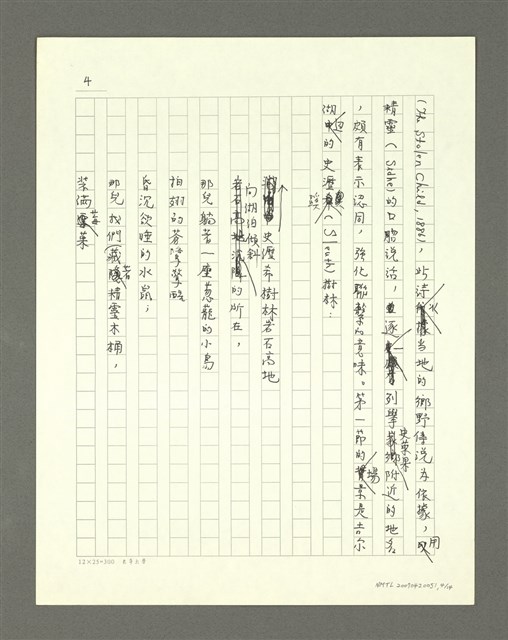 4
(The Stolen Child, 1886), 此詩以當地的鄉野傳說為依據，用
精靈 (Sidhe) 的口脗說話，並逐一列舉史萊果附近的地名
，頗有表示認同，強化聯繫的意味。第一節的場景是吉爾
湖邊的史濯 (Sleuth) 樹林：
史濯希樹林若石高地
向湖泊傾斜的所在，
那兒躺著一座蔥蘢的小島
拍翅的蒼鷺擊醒
昏沉欲睡的水鼠；
那兒我們藏著精靈木桶，
裝滿莓菓
12×25=300
NMTL 20070420051, 4/14